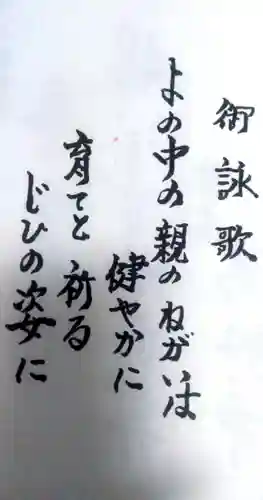 御詠歌
よの中の親のねがいは
健やかに
育てと祈る
じひの姿に